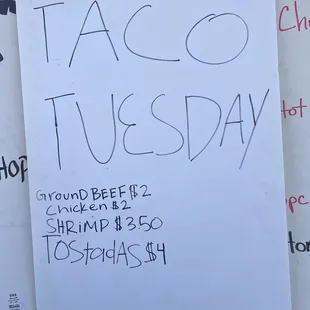 TACO
TUESDAY
GrounD BEEF $2
Chicken $2
SHRiMP $3.50
TOStadAS $4
HOP
Ch
tot
pc
tor